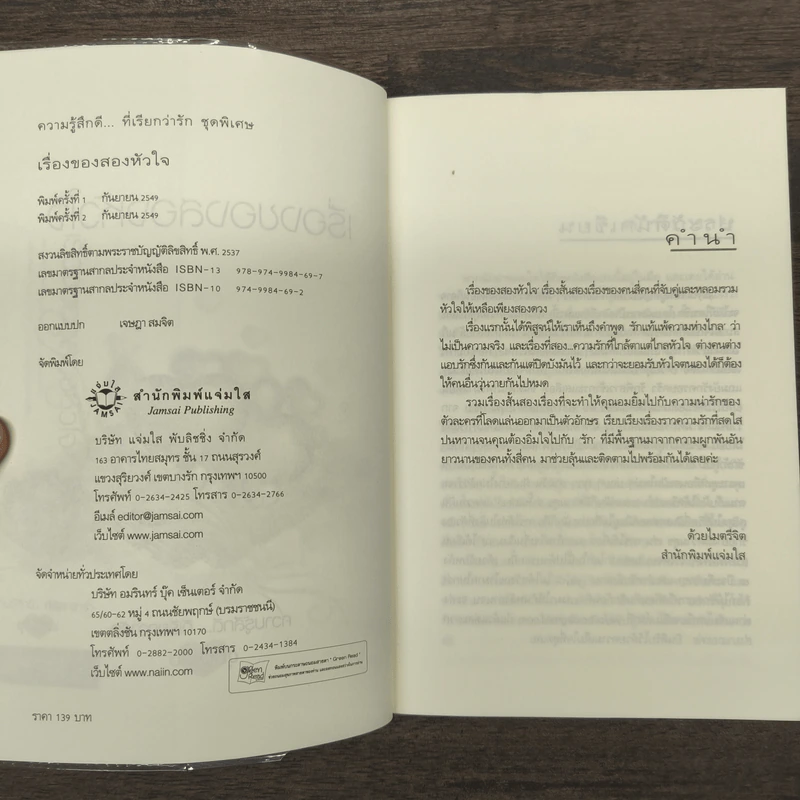 ความรู้สึกดี... ที่เรียกว่ารัก ชุดพิเศษ
เรื่องของสองหัวใจ
พิมพ์ครั้งที่ 1 กันยายน 2549
พิมพ์ครั้งที่ 2 กันยายน 2549
สงวนลิขสิทธิ์ตามพระราชบัญญัติลิขสิทธิ์ พ.ศ. 2537
เลขมาตรฐานสากลประจำหนังสือ ISBN-13 978-974-9984-69-7
เลขมาตรฐานสากลประจำหนังสือ ISBN-10 974-9984-69-2
ออกแบบปก เจษฎา สมจิต
จัดพิมพ์โดย
แจ่มใส
JAMSAI
สำนักพิมพ์แจ่มใส
Jamsai Publishing
บริษัท แจ่มใส พับลิชชิ่ง จำกัด
163 อาคารไทยสมุทร ชั้น 17 ถนนสุรวงศ์
แขวงสุริยวงศ์ เขตบางรัก กรุงเทพฯ 10500
โทรศัพท์ 0-2634-2425 โทรสาร 0-2634-2766
อีเมล์ editor@jamsai.com
เว็บไซต์ www.jamsai.com
จัดจำหน่ายทั่วประเทศโดย
บริษัท อมรินทร์ บุ๊ค เซ็นเตอร์ จำกัด
65/60-62 หมู่ 4 ถนนชัยพฤกษ์ (บรมราชชนนี)
เขตตลิ่งชัน กรุงเทพฯ 10170
โทรศัพท์ 0-2882-2000 โทรสาร 0-2434-1384
เว็บไซต์ www.naiin.com
Green Read
พิมพ์บนกระดาษถนอมสายตา "Green Read"
ราคา 139 บาท
คำนำ
'เรื่องของสองหัวใจ' เรื่องสั้นสองเรื่องของคนสี่คนที่จับคู่และหลอมรวม
หัวใจให้เหลือเพียงสองดวง
เรื่องแรกนั้นได้พิสูจน์ให้เราเห็นถึงคำพูด 'รักแท้แพ้ความห่างไกล' ว่า
ไม่เป็นความจริง และเรื่องที่สอง...ความรักที่ใกล้ตาแต่ไกลหัวใจ ต่างคนต่าง
แอบรักซึ่งกันและกันแต่ปิดบังมันไว้ และกว่าจะยอมรับหัวใจตนเองได้ก็ต้อง
ให้คนอื่นวุ่นวายกันไปหมด
รวมเรื่องสั้นสองเรื่องที่จะทำให้คุณอมยิ้มไปกับความน่ารักของ
ตัวละครที่โลดแล่นออกมาเป็นตัวอักษร เรียบเรียงเรื่องราวความรักที่สดใส
ปนหวานจนคุณต้องอิ่มใจไปกับ 'รัก' ที่มีพื้นฐานมาจากความผูกพันอัน
ยาวนานของคนทั้งสี่คน มาช่วยลุ้นและติดตามไปพร้อมกันได้เลยค่ะ
ด้วยไมตรีจิต
สำนักพิมพ์แจ่มใส